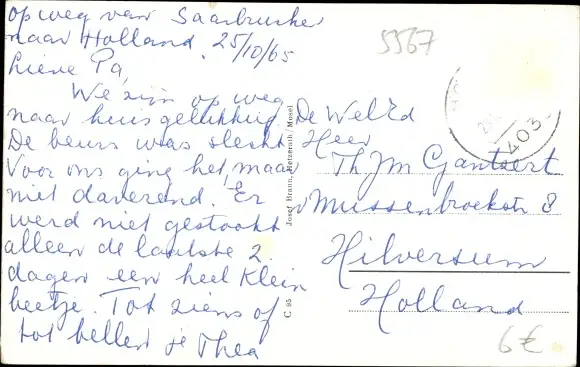 op weg van Saarbrucken
naar Holland. 25/10/65
Lieve Pa,
We zijn op weg
naar huis gelukkig
De beurs was slecht
Voor ons ging het, maar
niet daverend. Er
werd niet gestookt
alleen de laatste 2
dagen een heel klein
beetje. Tot ziens of
tot bellen je Thea
5567
403
De WelEd
Heer
Th. J m Gantvert
Mussenbroekstr 8
Hilversum
Holland
C 95 Josef Braun, Hetzerath / Mosel
6€